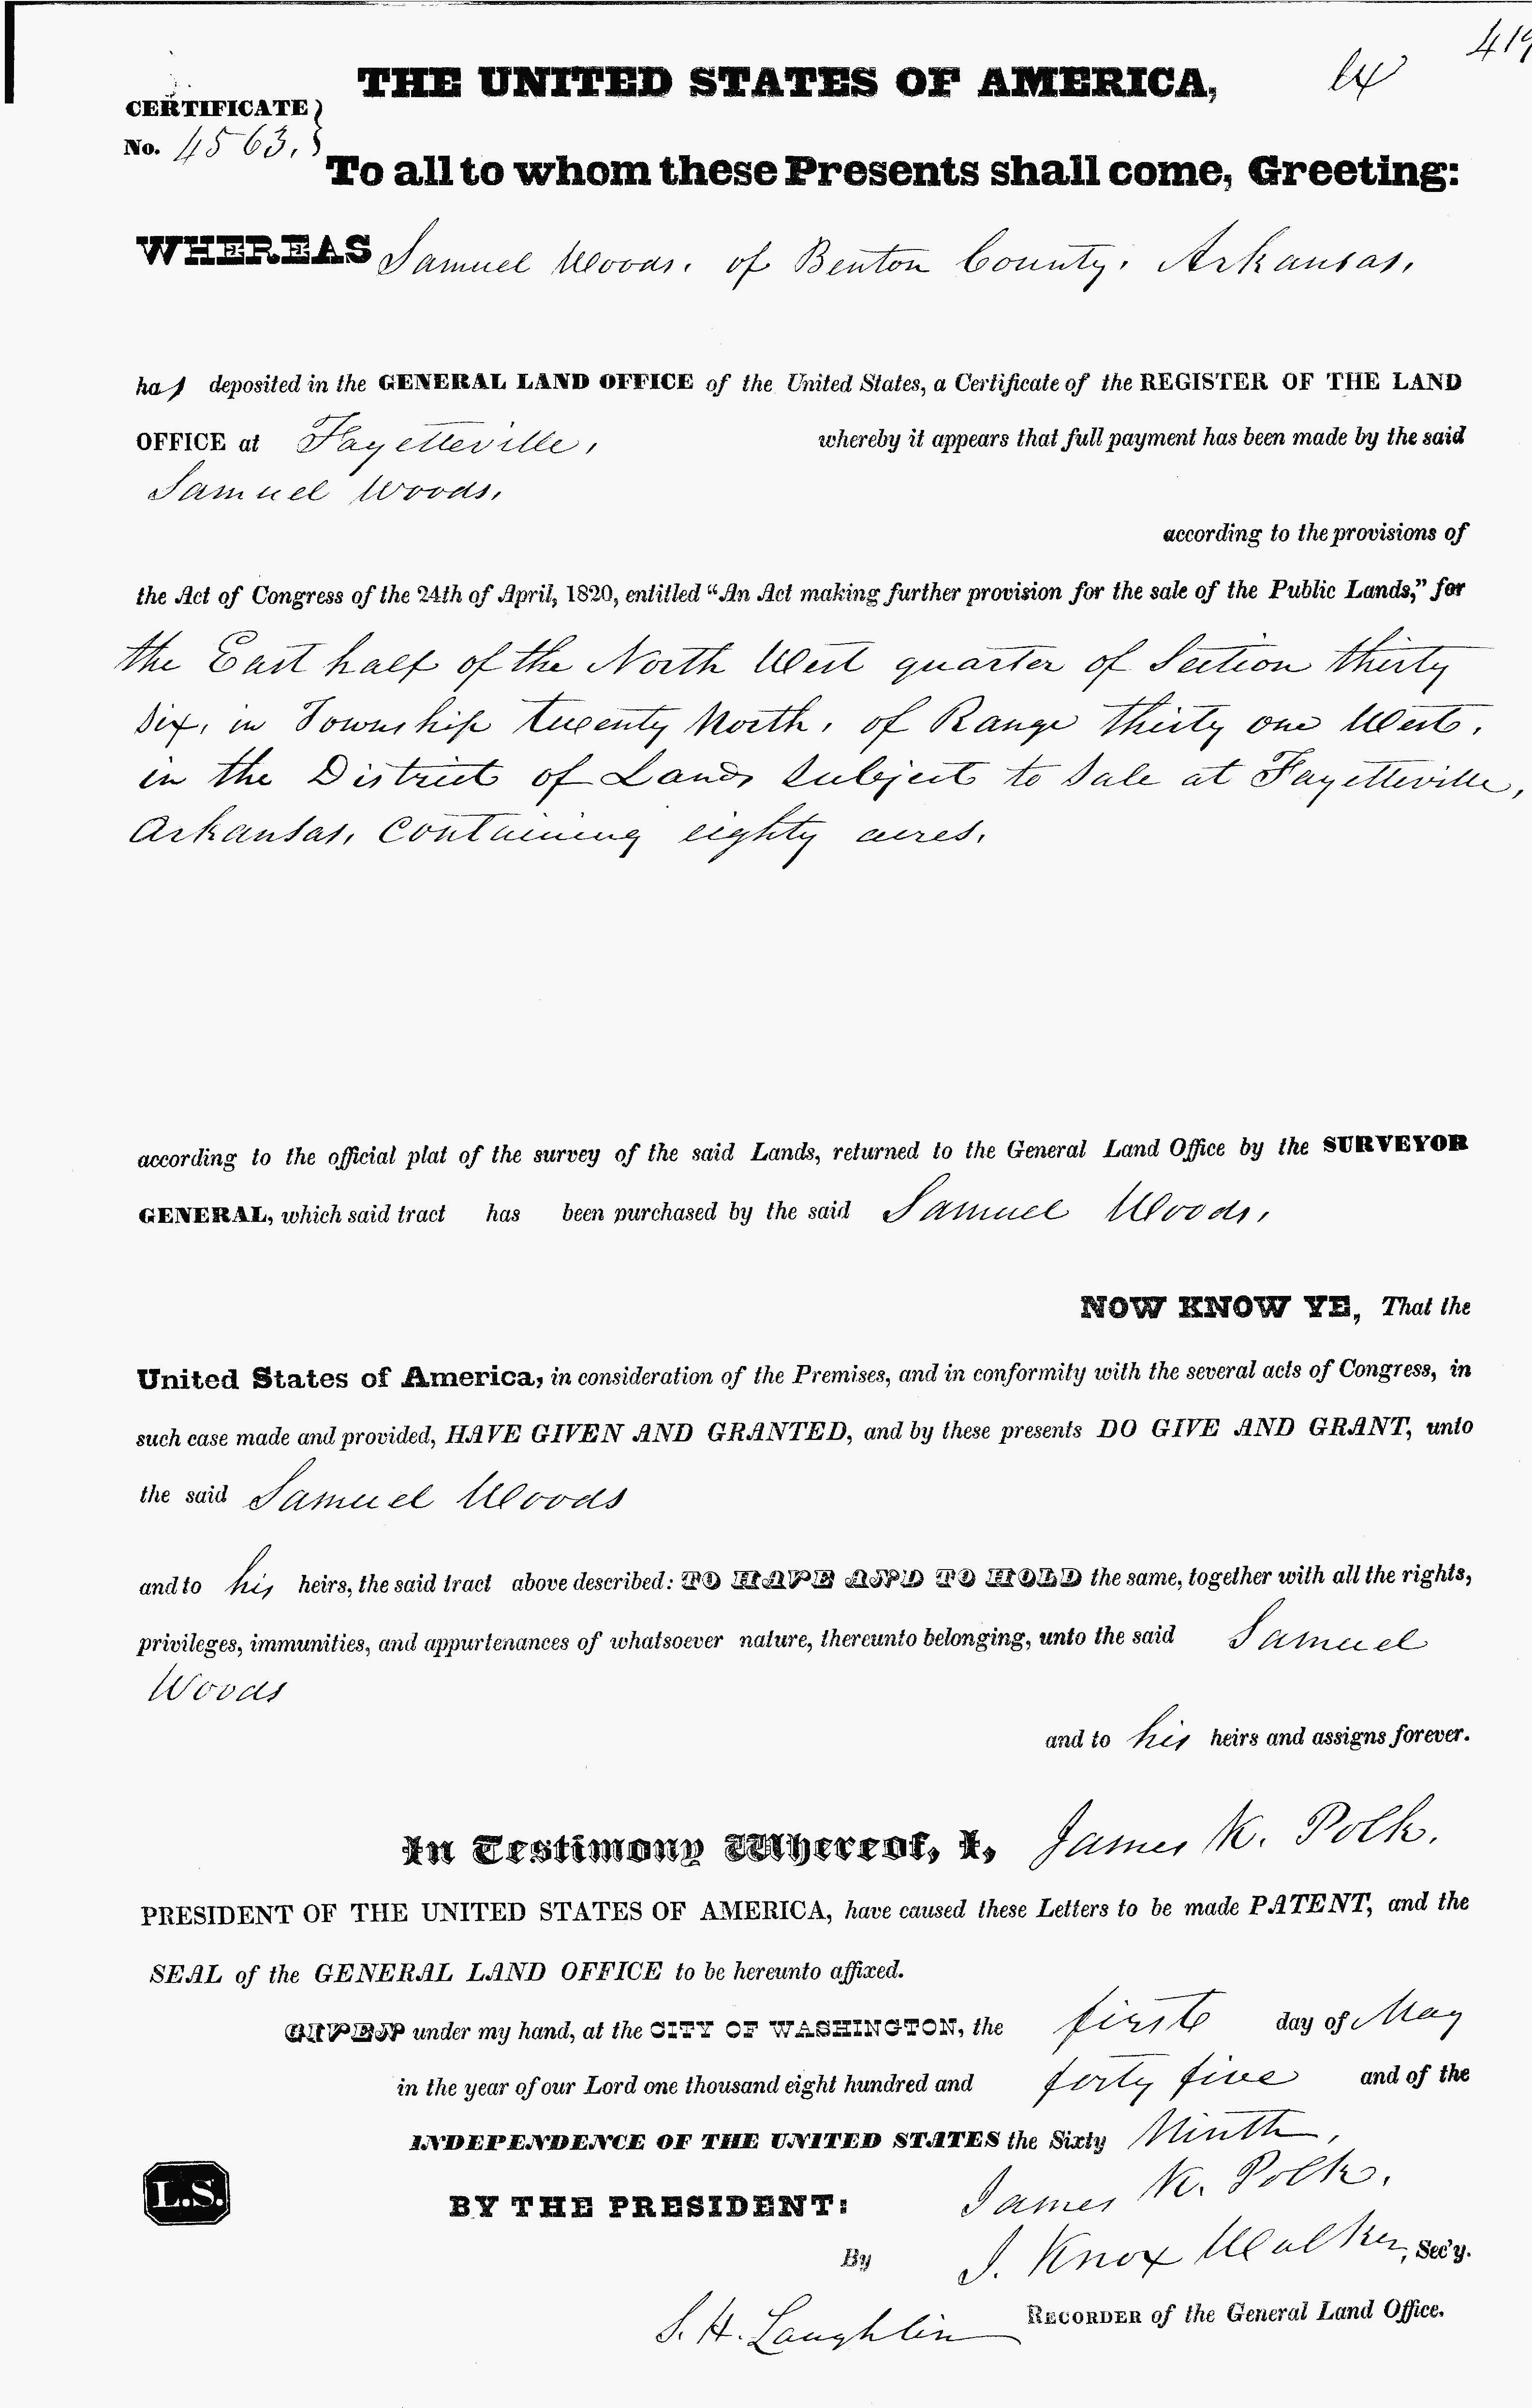 419
THE UNITED STATES OF AMERICA,
CERTIFICATE
No. 4563.
To all to whom these Presents shall come, Greeting:
WHEREAS Samuel Woods, of Benton County, Arkansas,
has deposited in the GENERAL LAND OFFICE of the United States, a Certificate of the REGISTER OF THE LAND
OFFICE at Fayetteville, whereby it appears that full payment has been made by the said
Samuel Woods,
according to the provisions of
the Act of Congress of the 24th of April, 1820, entitled “An Act making further provision for the sale of the Public Lands,” for
the East half of the North West quarter of Section thirty
six, in Township twenty North, of Range thirty one West,
in the District of Lands subject to sale at Fayetteville,
Arkansas, containing eighty acres,
according to the official plat of the survey of the said Lands, returned to the General Land Office by the SURVEYOR
GENERAL, which said tract has been purchased by the said Samuel Woods,
NOW KNOW YE, That the
United States of America, in consideration of the Premises, and in conformity with the several acts of Congress, in
such case made and provided, HAVE GIVEN AND GRANTED, and by these presents DO GIVE AND GRANT, unto
the said Samuel Woods
and to his heirs, the said tract above described: TO HAVE AND TO HOLD the same, together with all the rights,
privileges, immunities, and appurtenances of whatsoever nature, thereunto belonging, unto the said Samuel
Woods
and to his heirs and assigns forever.
In Testimony Whereof, I, James K. Polk,
PRESIDENT OF THE UNITED STATES OF AMERICA, have caused these Letters to be made PATENT, and the
SEAL of the GENERAL LAND OFFICE to be hereunto affixed.
GIVEN under my hand, at the CITY OF WASHINGTON, the first day of May
in the year of our Lord one thousand eight hundred and forty five and of the
INDEPENDENCE OF THE UNITED STATES the Sixty Ninth,
L.S.
BY THE PRESIDENT: James K. Polk,
By J. Knox Walker, Sec'y.
S. H. Laughlin RECORDER of the General Land Office.